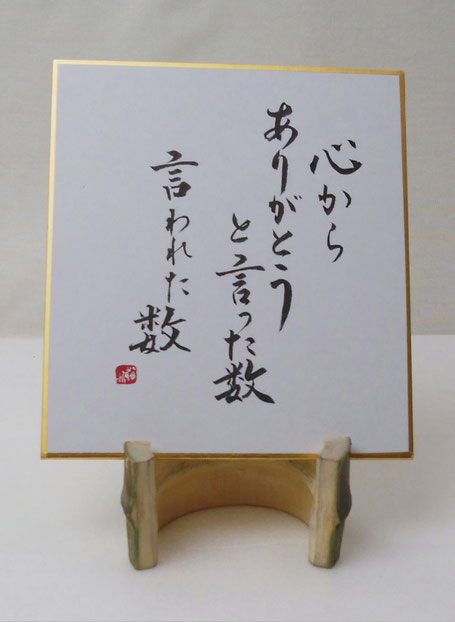 心から
ありがとう
と言った数
言われた数